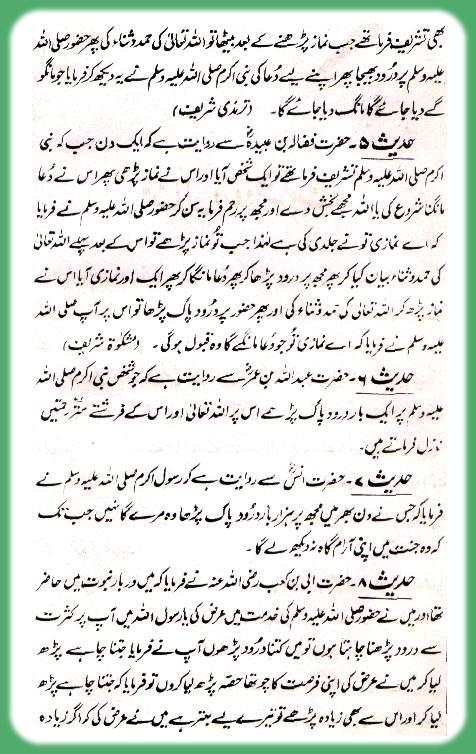 بھی تشریف فرما تھے جب نماز پڑھنے کے بعد بیٹھا تو اللہ تعالیٰ کی حمد و ثناء کی پھر حضور صلی اللہ
علیہ وسلم پر درود بھیجا پھر اپنے لیے دُعا کی نبی اکرم صلی اللہ علیہ وسلم نے یہ دیکھ کر فرمایا جو مانگو
گے دیا جائے گا مانگ دیا جائے گا۔ (ترمذی شریف)
حدیث ۵۔ حضرت فضالہ بن عبیدہؓ سے روایت ہے کہ ایک دن جب کہ نبی
اکرم صلی اللہ علیہ وسلم تشریف فرما تھے تو ایک شخص آیا اور اس نے نماز پڑھی پھر اس نے دُعا
مانگنا شروع کی یا اللہ مجھے بخش دے اور مجھ پر رحم فرما یہ سن کر حضور صلی اللہ علیہ وسلم نے فرمایا
کہ اے نمازی تو نے جلدی کی ہے لہٰذا جب تُو نماز پڑھے تو اس کے بعد پہلے اللہ تعالیٰ
کی حمد و ثناء بیان کیا کر پھر مجھ پر درود پڑھا کر پھر دُعا مانگا کر پھر ایک اور نمازی آیا اس نے
نماز پڑھ کر اللہ تعالیٰ کی حمد و ثناء کی اور پھر حضور پر درود پاک پڑھا تو اس پر آپ صلی اللہ
علیہ وسلم نے فرمایا کہ اے نمازی تُو جو دُعا مانگے گا وہ قبول ہوگی۔ (مشکوٰۃ شریف)
حدیث ۶۔ حضرت عبداللہ بن عمرؓ سے روایت ہے کہ جو شخص نبی اکرم صلی اللہ
علیہ وسلم پر ایک بار درود پاک پڑھے اس پر اللہ تعالیٰ اور اس کے فرشتے ستر رحمتیں
نازل فرماتے ہیں۔
حدیث ۷۔ حضرت انسؓ سے روایت ہے کہ رسول اکرم صلی اللہ علیہ وسلم نے
فرمایا کہ جس نے دن بھر میں مجھ پر ہزار بار درُود پاک پڑھا وہ مرے گا نہیں جب تک
کہ وہ جنت میں اپنی آرام گاہ نہ دیکھ لے گا۔
حدیث ۸۔ حضرت ابی بن کعب رضی اللہ عنہ نے فرمایا کہ میں دربار نبوت میں حاضر
تھا اور میں نے حضور صلی اللہ علیہ وسلم کی خدمت میں عرض کی یا رسول اللہ میں آپ پر کثرت
سے درود پڑھنا چاہتا ہوں تو میں کتنا درُود پڑھوں آپ نے فرمایا جتنا چاہے پڑھ
لیا کر میں نے عرض کی اپنی فرصت کا چوتھا حصّہ پڑھ لیا کروں تو فرمایا کہ جتنا چاہے پڑھ
لیا کر اور اس سے بھی زیادہ پڑھے تو تیرے لیے بہتر ہے میں نے عرض کی کہ اگر زیادہ